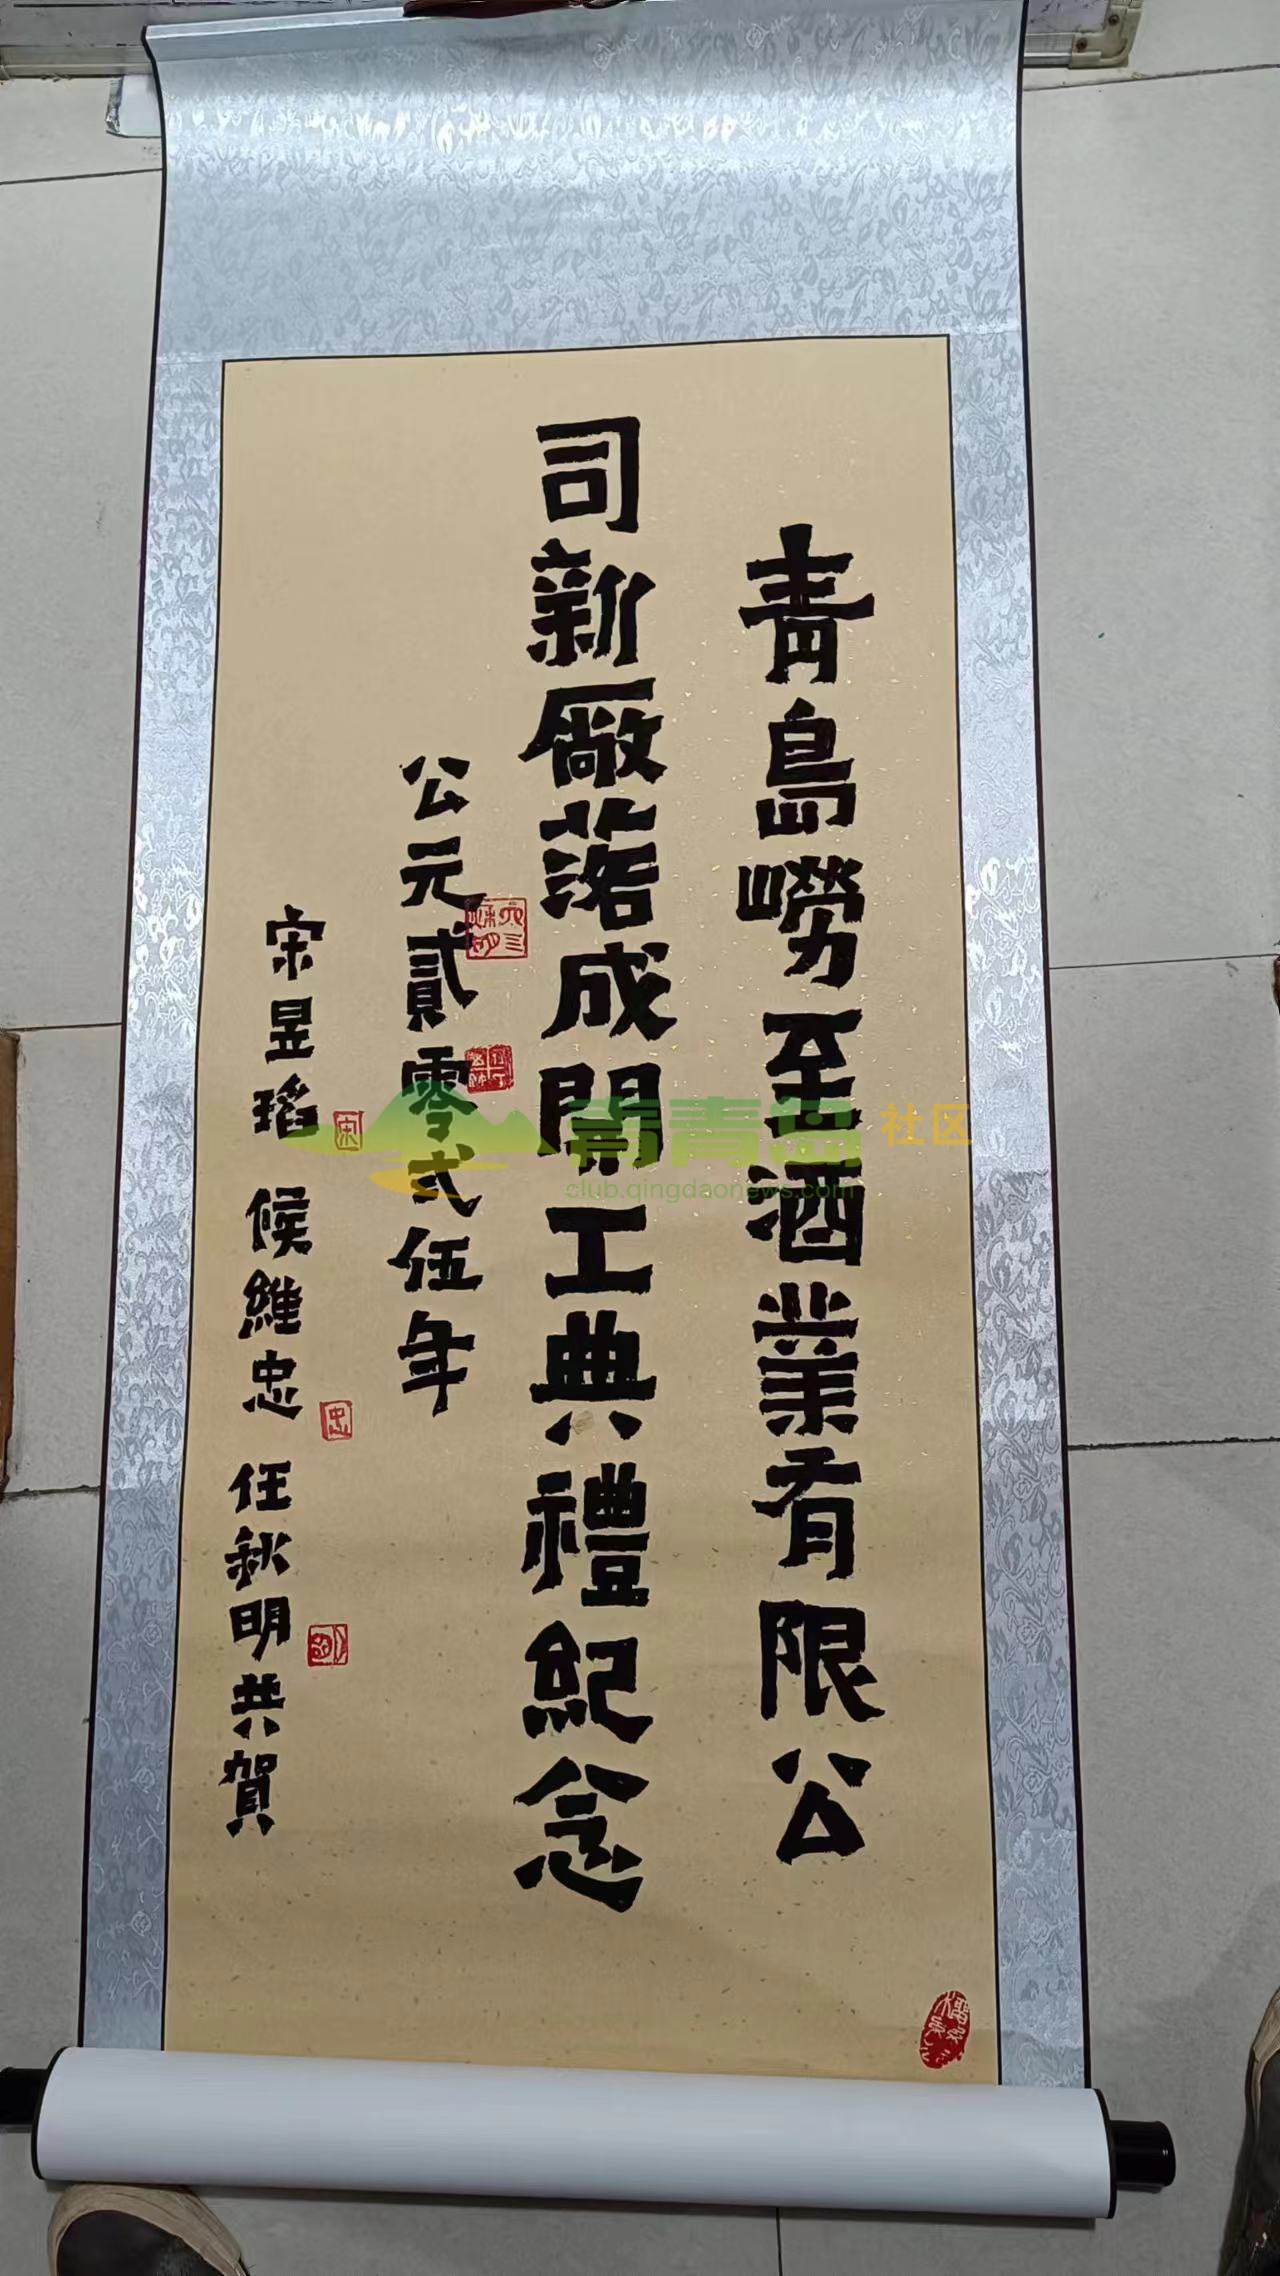 青島嶗至酒業有限公
司新厰落成開工典禮紀念
公元貳零弍伍年
宋昱瑤 候維忠 任秋明共賀
宋
忠
青青岛社区
club.qingdaonews.com